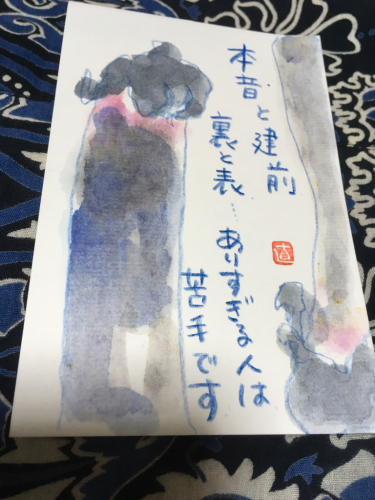 本音と建前
裏と表…ありすぎる人は
苦手です